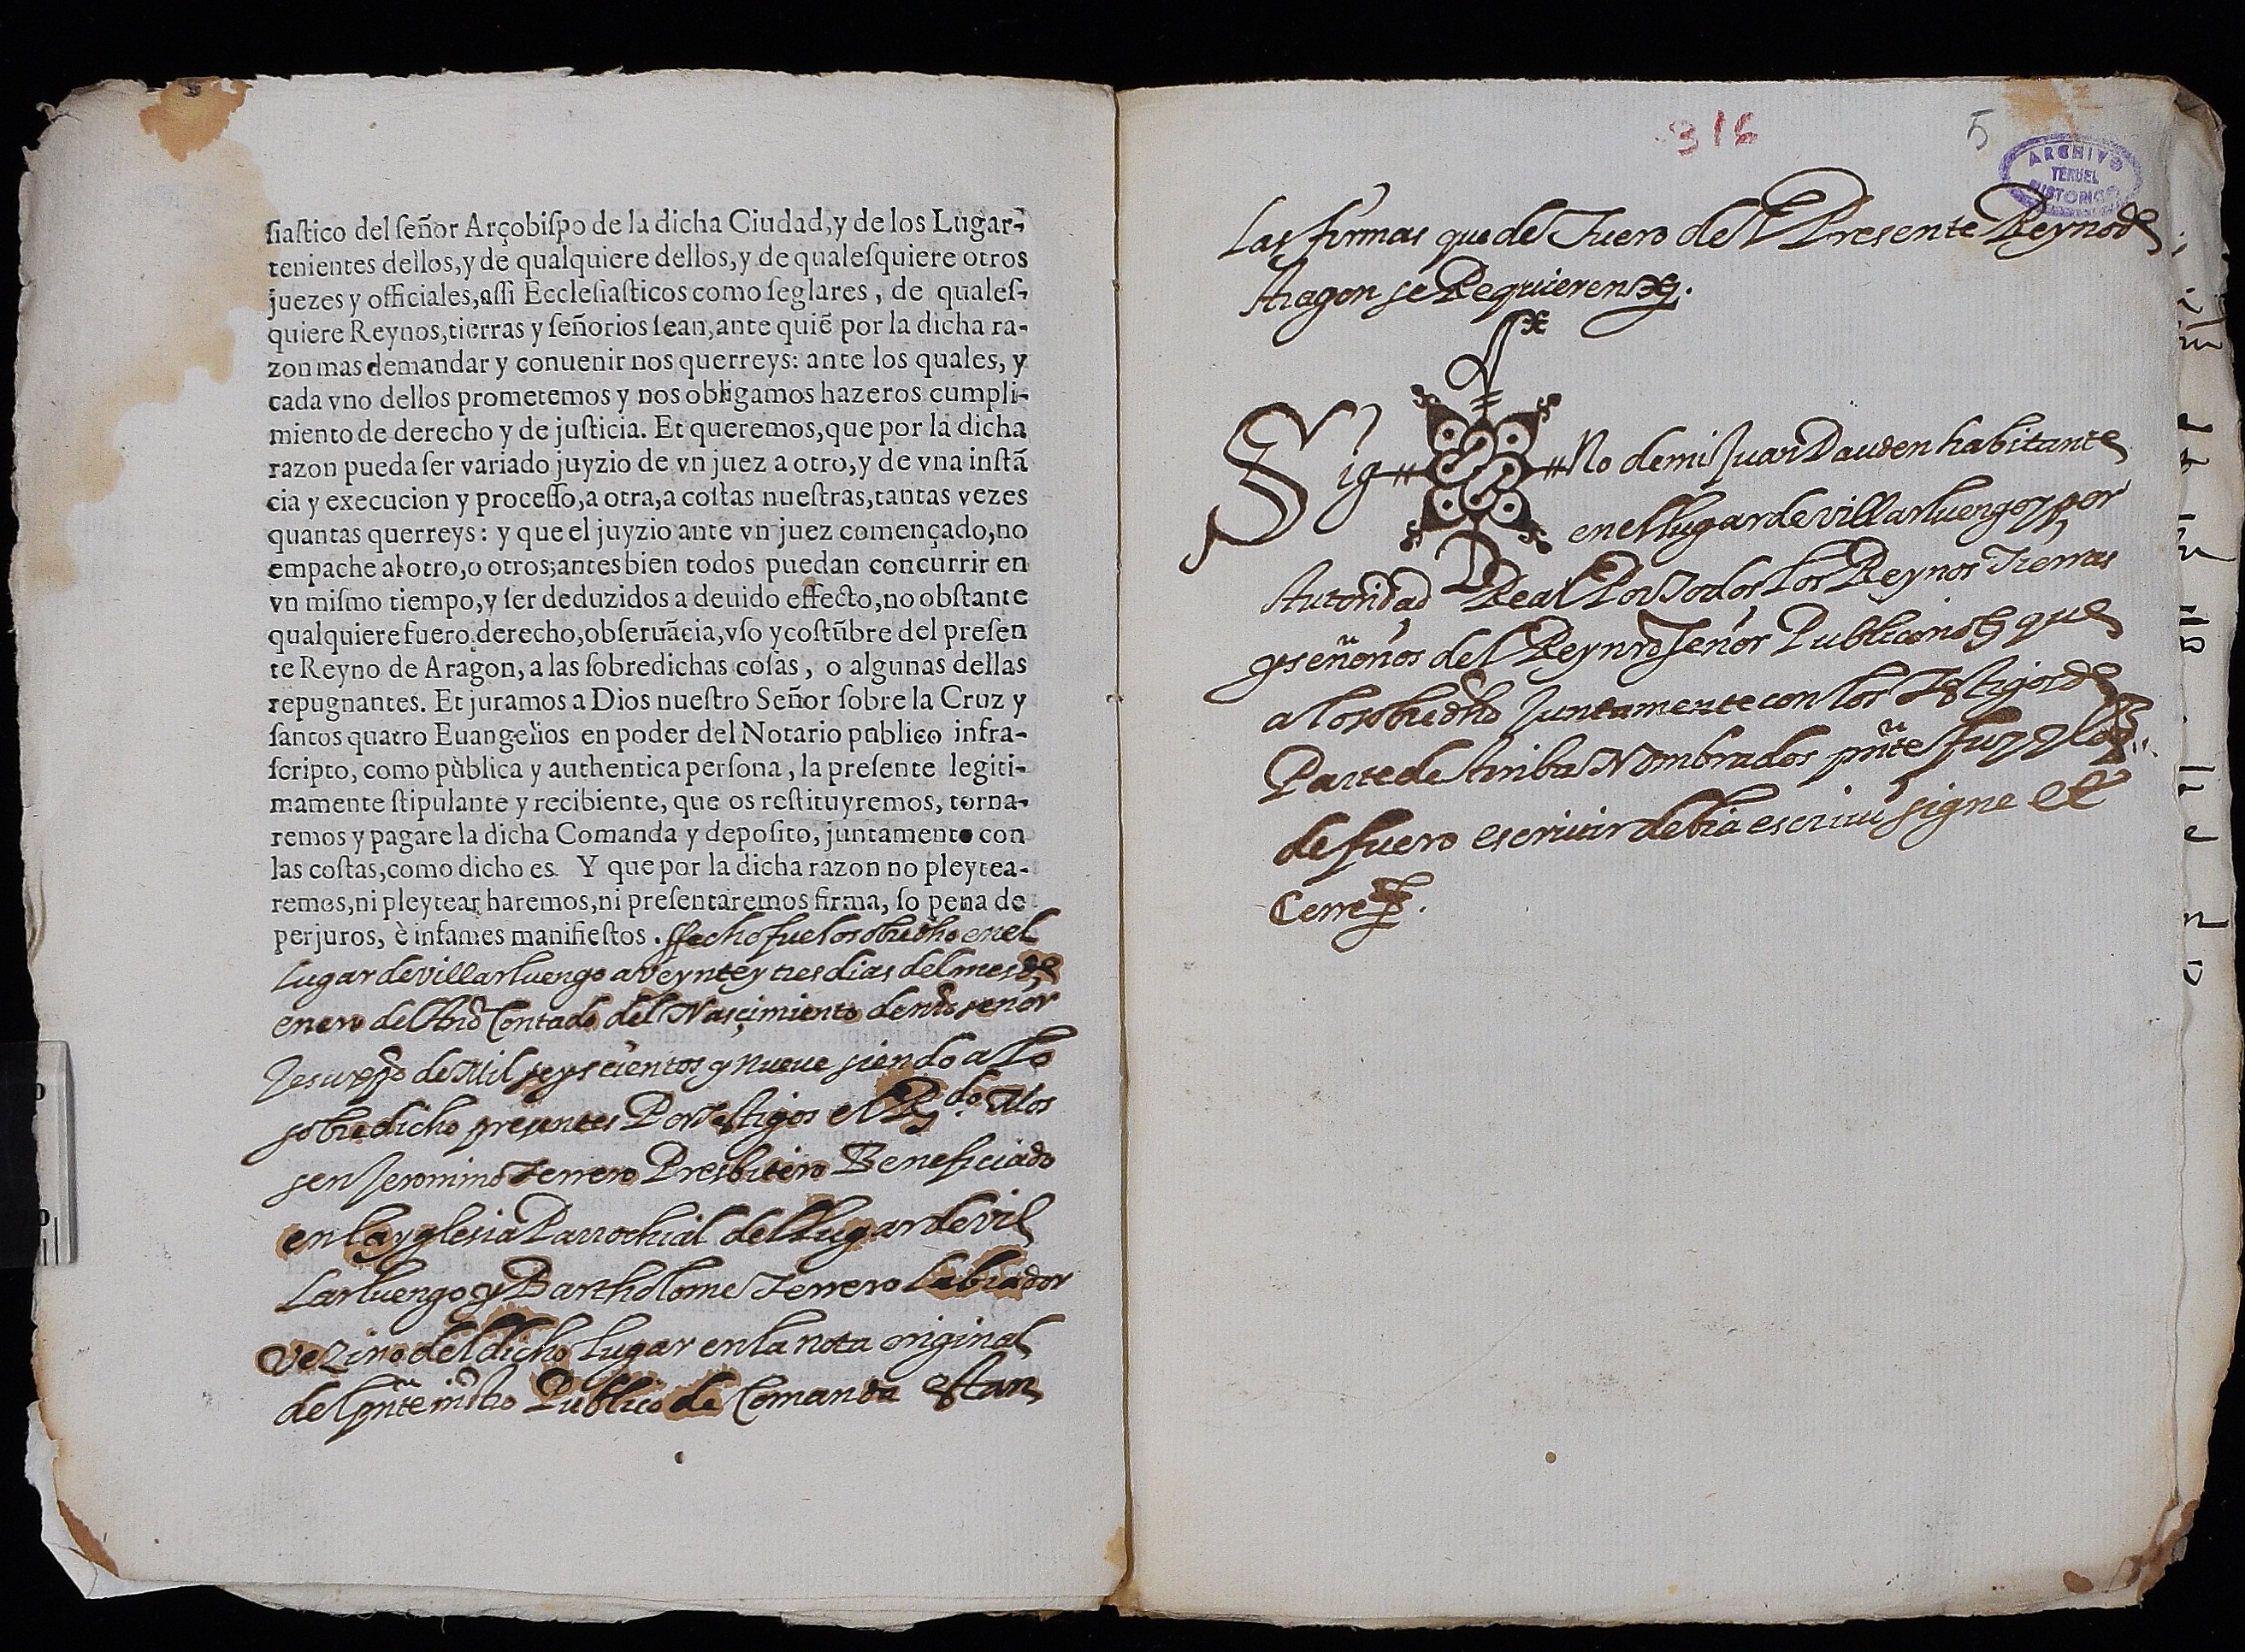 ſiaſtico del ſeñor Arçobiſpo de la dicha Ciudad, y de los Lugar-
tenientes dellos, y de qualquiere dellos, y de qualeſquiere otros
juezes y officiales, aſſi Eccleſiaſticos como ſeglares, de qualeſ-
quiere Reynos, tierras y ſeñorios ſean, ante quiẽ por la dicha ra-
zon mas demandar y conuenir nos querreys: ante los quales, y
cada vno dellos prometemos y nos obligamos hazeros cumpli-
miento de derecho y de juſticia. Et queremos, que por la dicha
razon pueda ſer variado juyzio de vn juez a otro, y de vna inſtã
cia y execucion y proceſſo, a otra, a coſtas nueſtras, tantas vezes
quantas querreys: y que el juyzio ante vn juez començado, no
empache al otro, o otros; antes bien todos puedan concurrir en
vn miſmo tiempo, y ſer deduzidos a deuido effecto, no obſtante
qualquiere fuero, derecho, obſeruãcia, vſo y coſtũbre del preſen
te Reyno de Aragon, a las ſobredichas coſas, o algunas dellas
repugnantes. Et juramos a Dios nueſtro Señor ſobre la Cruz y
ſantos quatro Euangelios en poder del Notario publico infra-
ſcripto, como pùblica y authentica perſona, la preſente legiti-
mamente ſtipulante y recibiente, que os reſtituyremos, torna-
remos y pagare la dicha Comanda y depoſito, juntamente con
las coſtas, como dicho es. Y que por la dicha razon no pleytea-
remos, ni pleytear haremos, ni preſentaremos firma, ſo pena de
perjuros, è infames manifieſtos. ffecho fue lo sobrédho en el
Lugar de villarluengo a veynte y tres dias del mes de
enero del Año Contado del Nasçimiento de nro señor
Jesuxpo de Mil seyscientos y nueve siendo a lo
sobredicho presentes Por testigos el Rdo Mos
sen Jeronimo Terrero Presbitero Beneficiado
en la yglesia Parrochial del lugar de vil
Larluengo y Bartholome Terrero Labrador
vezino del dicho lugar en la nota original
del pñte instro Publico de Comanda estan
316
5
ARCHIVO
TERUEL
HISTORICO
Las firmas que de Fuero del Presente Reyno de
Aragon se Requieren
Sig No de mi Juan Dauden habitante
en el lugar de villarluengo y por
Autoridad Real Por Todos los Reynos Tierras
y señorios del Rey nro señor Publico not que
a lo sobredho Juntamente con los Testigos de
Parte de Arriba Nombrados pñte fuy
de fuero escriuir debia escriui signe et
Cerre